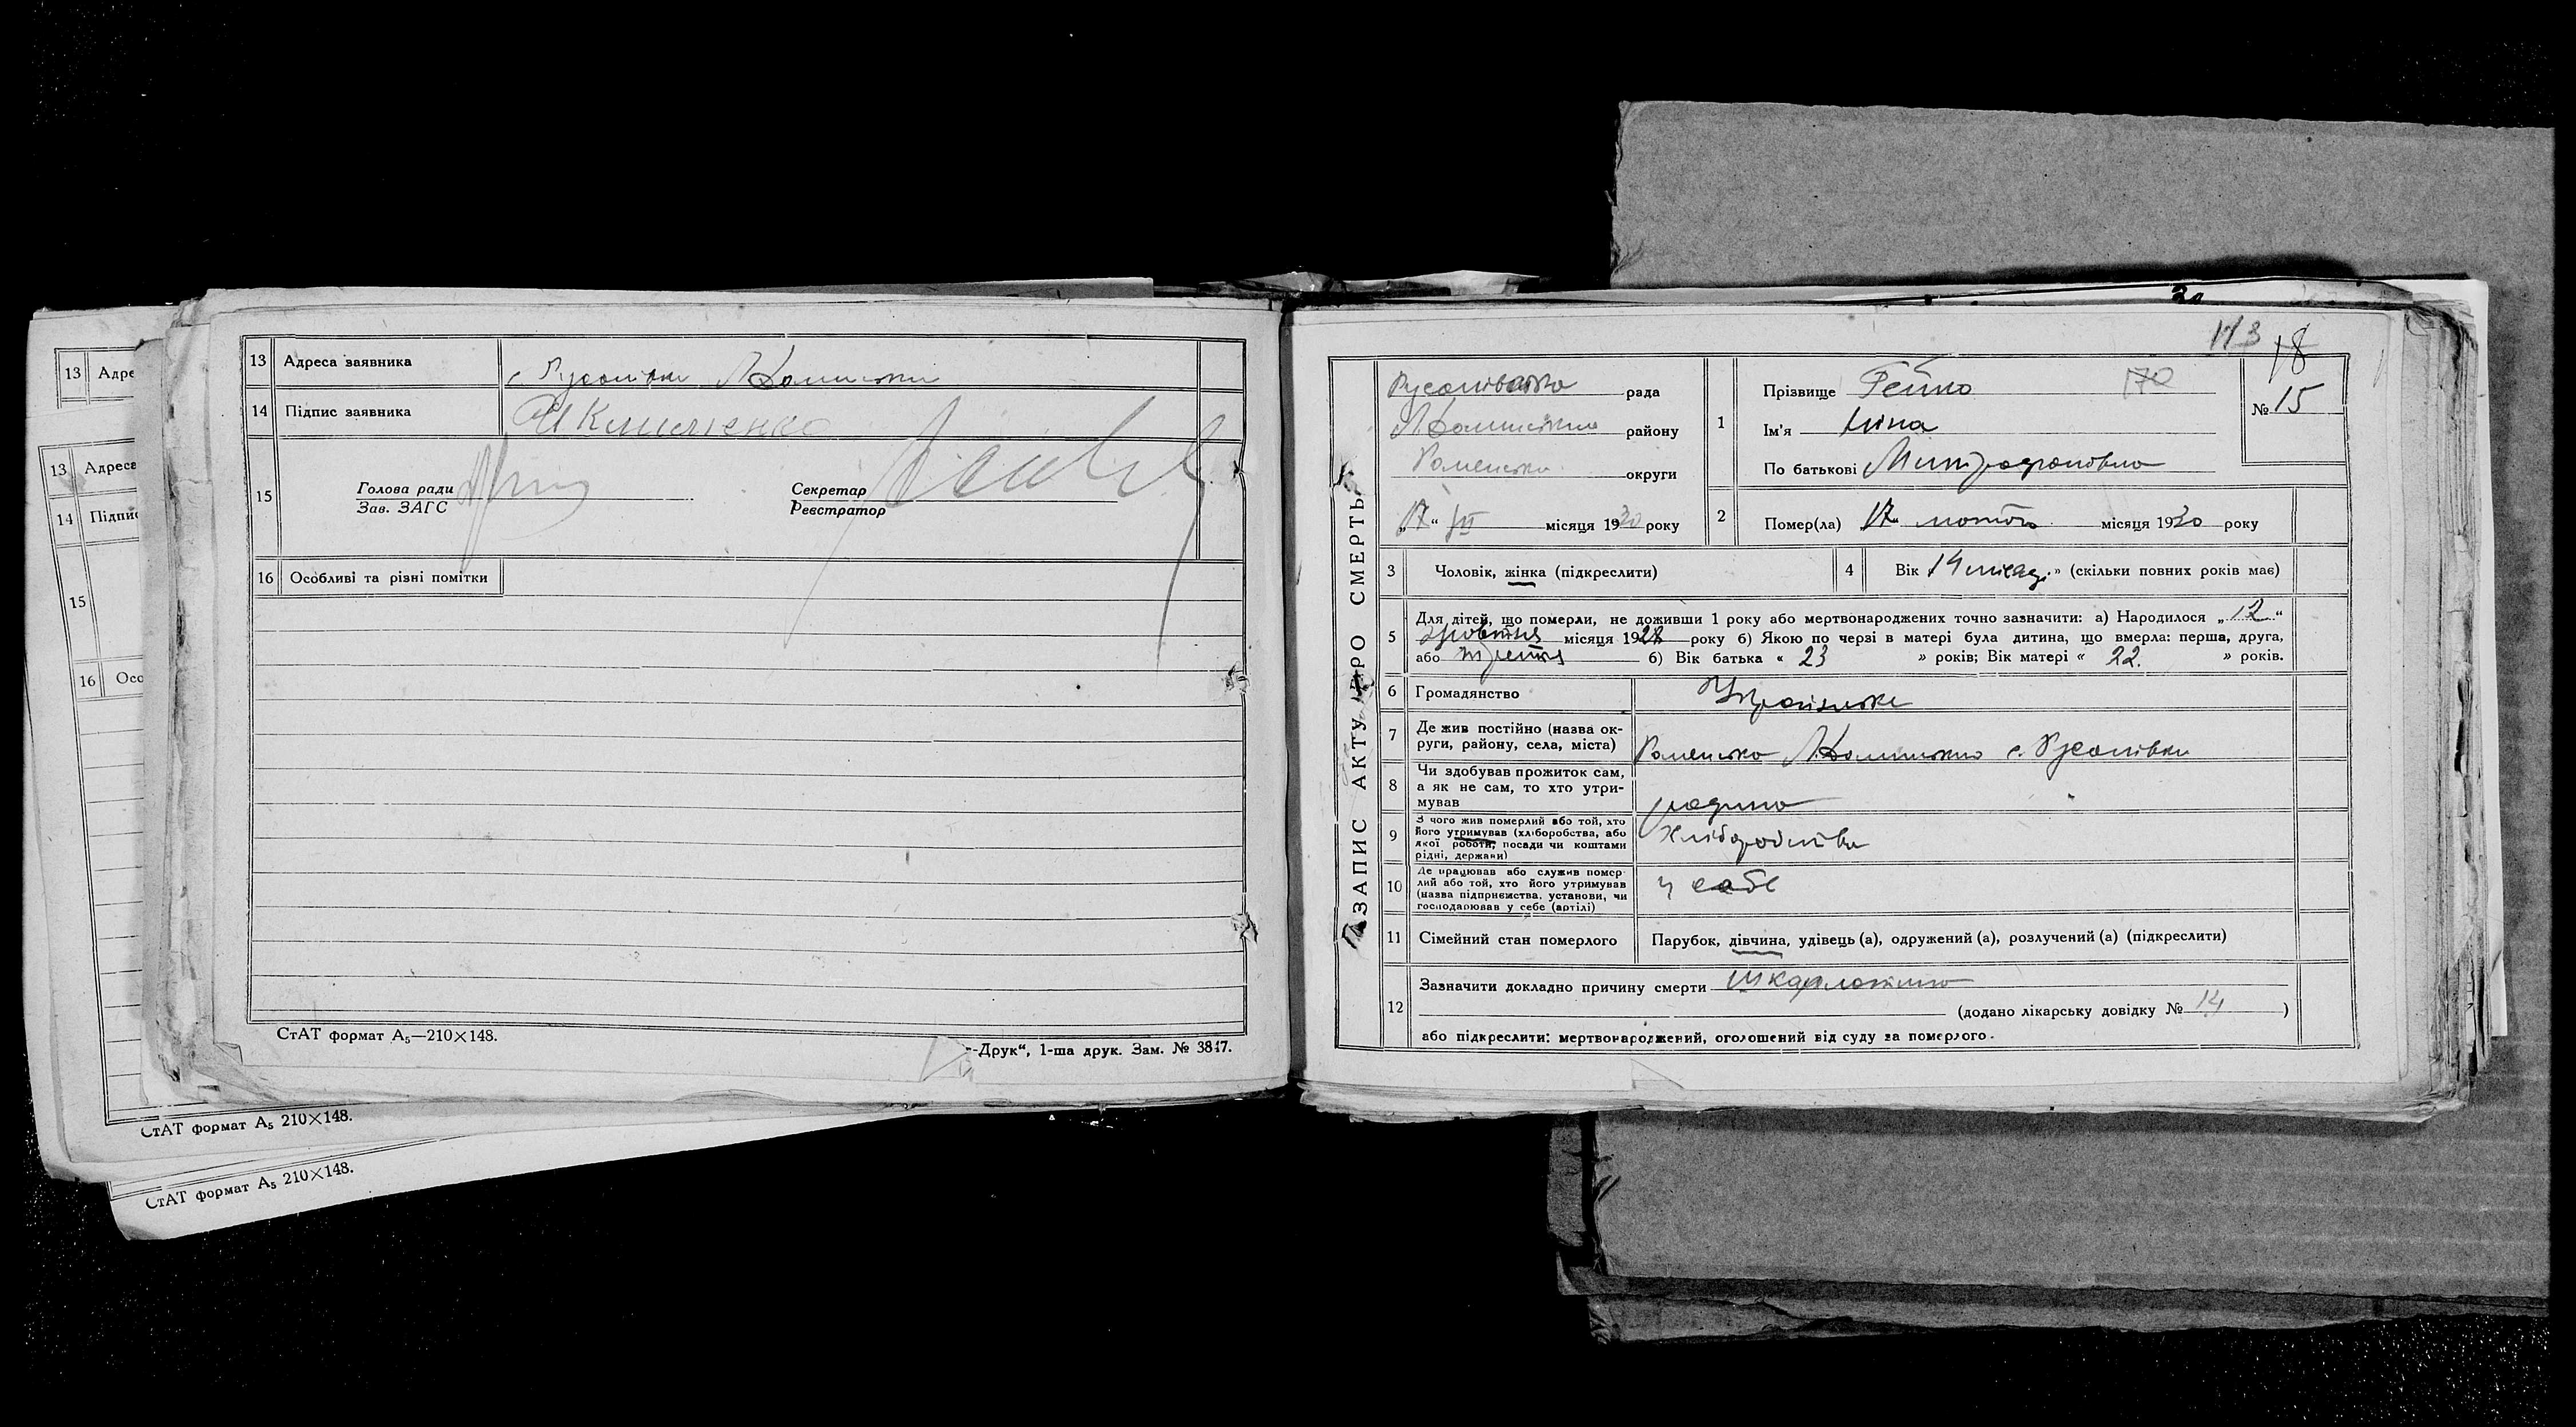 13 Адре
13 Адреса
14 Підпис
15
16 Осо
СтАТ формат А₅ 210×148.
СтАТ формат А₅ 210×148.
13 Адреса заявника с. Русанівка
14 Підпис заявника
15 Голова ради
Зав. ЗАГС
Секретар
Реєстратор
16 Особливі та різні помітки
СтАТ формат А₅—210×148.
-Друк“, 1-ша друк. Зам. № 3847.
ЗАПИС АКТУ ПРО СМЕРТЬ
173
18
рада
району
Роменська округи
„17“ III місяця 1930 року
1 Прізвище Гейко 170
Ім'я
По батькові Митрофановна
№ 15
2 Помер(ла) 17 лютого місяця 1930 року
3 Чоловік, жінка (підкреслити)
4 Вік 14 місяц.» (скільки повних років має)
5 Для дітей, що померли, не доживши 1 року або мертвонароджених точно зазначити: а) Народилося „12“
місяця 1928 року б) Якою по черзі в матері була дитина, що вмерла: перша, друга,
або третя б) Вік батька « 23 » років; Вік матері « 22. » років.
6 Громадянство Українське
7 Де жив постійно (назва ок-
руги, району, села, міста) Роменська с. Русанівка
8 Чи здобував прожиток сам,
а як не сам, то хто утри-
мував родина
9 З чого жив померлий або той, хто
його утримував (хліборобства, або
якої роботи, посади чи коштами
рідні, держави) Хліборобства
10 Де працював або служив помер-
лий або той, хто його утримував
(назва підприємства, установи, чи
господарював у себе (артілі) у себе
11 Сімейний стан померлого Парубок, дівчина, удівець (а), одружений (а), розлучений (а) (підкреслити)
12 Зазначити докладно причину смерти Шкарлатина
(додано лікарську довідку № 14 )
або підкреслити: мертвонароджений, оголошений від суду за померлого.